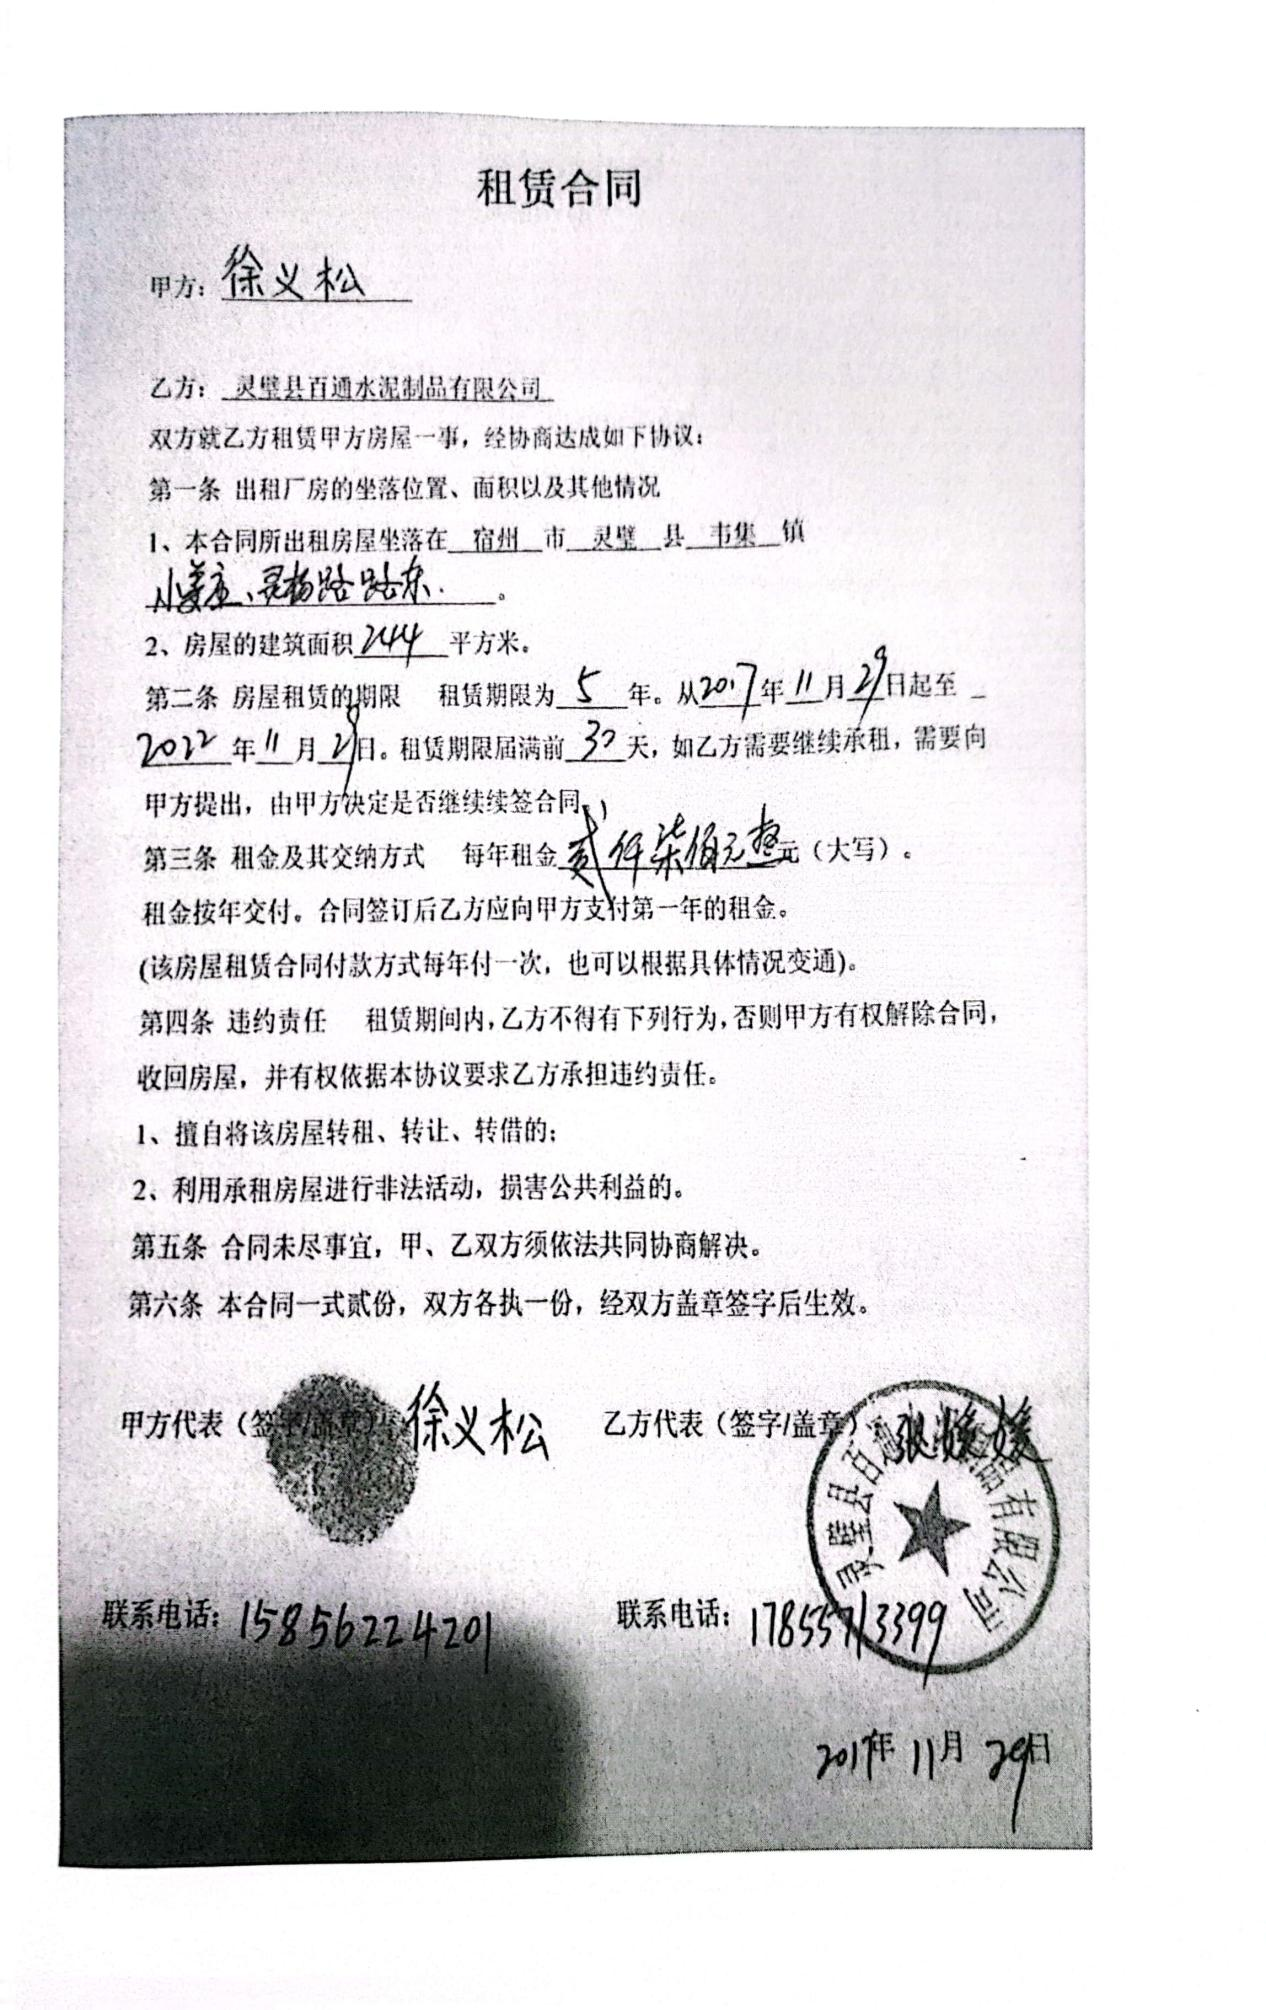 租赁合同
甲方：徐义松
乙方：灵璧县百通水泥制品有限公司
双方就乙方租赁甲方房屋一事，经协商达成如下协议：
第一条 出租厂房的坐落位置、面积以及其他情况
1、本合同所出租房屋坐落在 宿州 市 灵璧 县 韦集 镇
小姜庄、灵杨路路东.。
2、房屋的建筑面积244平方米。
第二条 房屋租赁的期限 租赁期限为5年。从2017年11月29日起至
2022年11月29日。租赁期限届满前30天，如乙方需要继续承租，需要向
甲方提出，由甲方决定是否继续续签合同。
第三条 租金及其交纳方式 每年租金贰仟柒佰元整元（大写）。
租金按年交付。合同签订后乙方应向甲方支付第一年的租金。
(该房屋租赁合同付款方式每年付一次，也可以根据具体情况变通)。
第四条 违约责任 租赁期间内，乙方不得有下列行为，否则甲方有权解除合同，
收回房屋，并有权依据本协议要求乙方承担违约责任。
1、擅自将该房屋转租、转让、转借的；
2、利用承租房屋进行非法活动，损害公共利益的。
第五条 合同未尽事宜，甲、乙双方须依法共同协商解决。
第六条 本合同一式贰份，双方各执一份，经双方盖章签字后生效。
甲方代表（签字/盖章）：徐义松 乙方代表（签字/盖章）张媛媛
灵璧县百通水泥制品有限公司
联系电话：15856224201 联系电话：17855713399
2017年11月29日